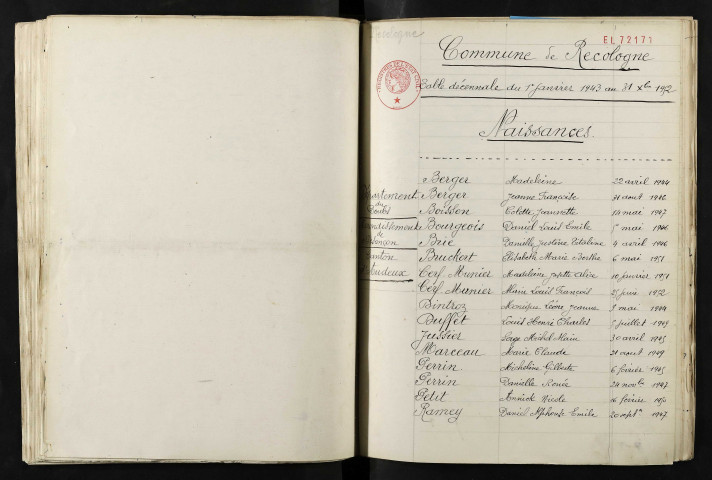 Recologne
EL 72171
Commune de Recologne
Table décennale du 1er janvier 1943 au 31 Xbre 1952
Naissances.
Département
du
Doubs
Arrondissement
de
Besançon
Canton
d'Audeux
Berger Madeleine 22 avril 1944
Berger Jeanne Françoise 31 aout 1946
Boisson Colette Jeannette 14 mai 1947
Bourgeois Daniel Louis Emile 5 mai 1946
Brie Danielle Justine 4 avril 1946
Bruckert Elisabeth Marie Berthe 6 mai 1951
Cerf Munier Madeleine Alice 10 février 1951
Cerf Munier Marie Louis François 25 juin 1952
Dintroz Monique Jeanne 9 mai 1944
Buffet Louis Henri Charles 5 juillet 1949
Jussier Serge Michel Alain 30 avril 1945
Marceau Marie Claude 21 aout 1949
Perrin Micheline Gilberte 6 février 1945
Perrin Danielle Renée 24 novbre 1947
Petit Annick Nicole 16 février
Ramey Daniel Alphonse Emile 20 sept. 1947